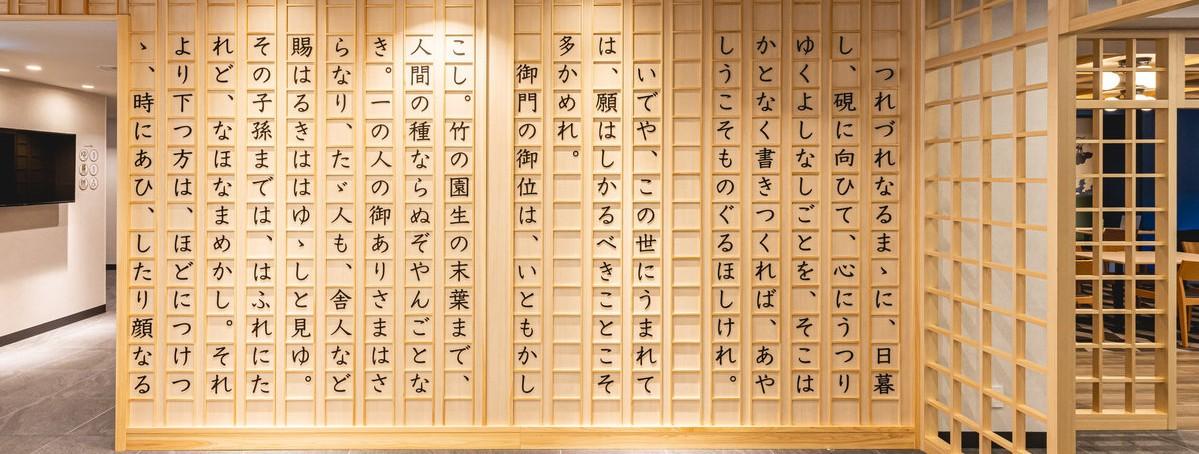 つれづれなるまゝに、日暮
し、硯に向ひて、心にうつり
ゆくよしなしごとを、そこは
かとなく書きつくれば、あや
しうこそものぐるほしけれ。
いでや、この世にうまれて
は、願はしかるべきことこそ
多かめれ。
御門の御位は、いともかし
こし。竹の園生の末葉まで、
人間の種ならぬぞやんごとな
き。一の人の御ありさまはさ
らなり、たゞ人も、舎人など
賜はるきははゆゝしと見ゆ。
その子孫までは、はふれにた
れど、なほなまめかし。それ
より下つ方は、ほどにつけつ
ゝ、時にあひ、したり顔なる